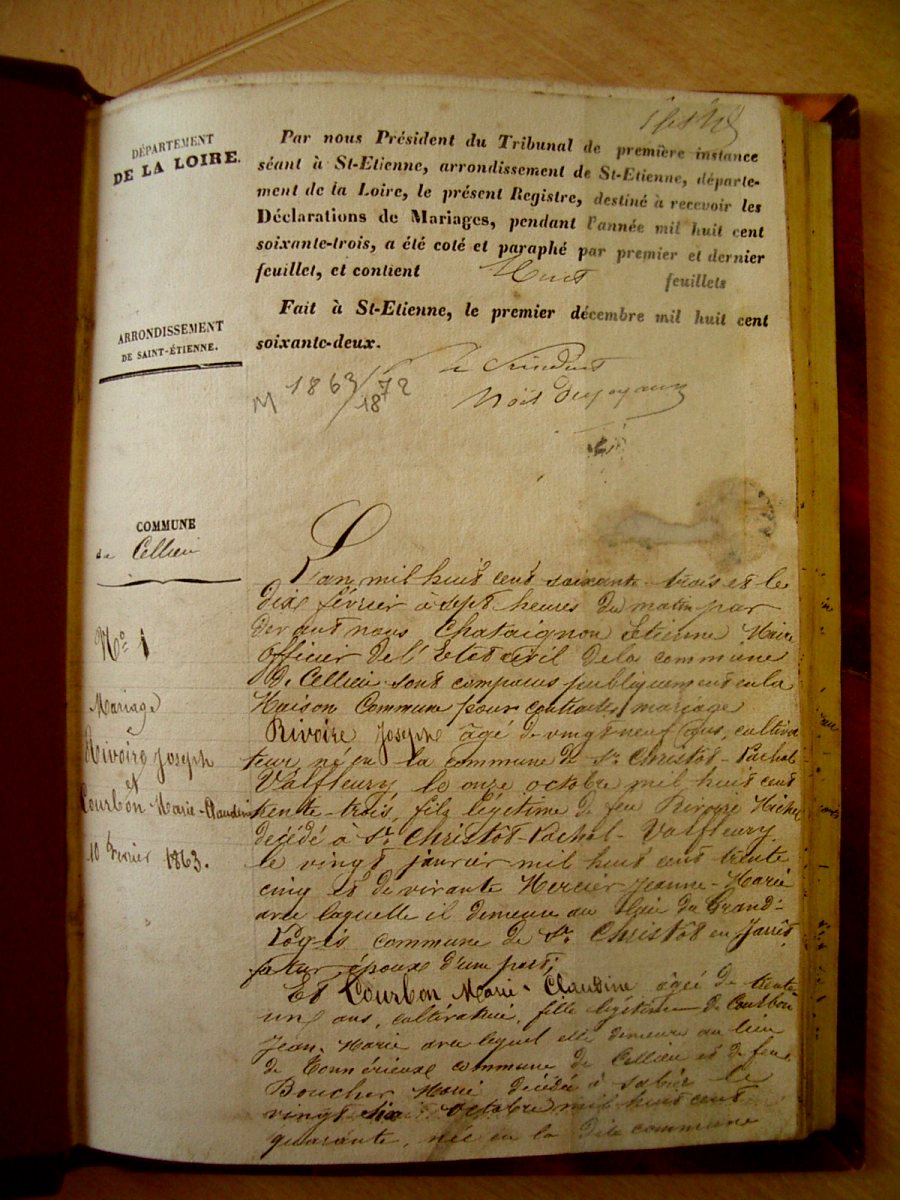 DÉPARTEMENT
DE LA LOIRE.
Par nous Président du Tribunal de première instance
séant à St-Etienne, arrondissement de St-Etienne, départe-
ment de la Loire, le présent Registre, destiné à recevoir les
Déclarations de Mariages, pendant l'année mil huit cent
soixante-trois, a été coté et paraphé par premier et dernier
feuillet, et contient feuillets
Fait à St-Etienne, le premier décembre mil huit cent
soixante-deux.
ARRONDISSEMENT
DE SAINT-ÉTIENNE.
M 1863/1872
COMMUNE
de Cellieu
No 1
Mariage
Rivoire Joseph
et
Courbon Marie-Claudine
10 Février 1863.
L'an mil huit cent soixante trois et le
dix février à sept heures du matin par
devant nous Chataignon Etienne Maire
officier de l'Etat civil de la commune
de Cellieu sont comparus publiquement en la
Maison Commune pour contracter mariage
Rivoire Joseph âgé de vingt neuf ans, cultiva
teur, né en la commune de St Christôt-Lachal
Valfleury, le onze octobre mil huit cent
trente-trois, fils légitime de feu Rivoire Michel
décédé à St Christôt-Lachal-Valfleury
le vingt janvier mil huit cent trente
cinq et de vivante Mercier Jeanne-Marie
avec laquelle il demeure au lieu du Grand-
Logis commune de St Christôt en Jarret
futur époux d'une part;
Et Courbon Marie-Claudine âgée de trente
un ans, cultivatrice, fille légitime de Courbon
Jean-Marie avec lequel elle demeure au lieu
de commune de Cellieu et de feue
Boucher Marie décédée à le
vingt six octobre mil huit cent
quarante, née en la dite commune